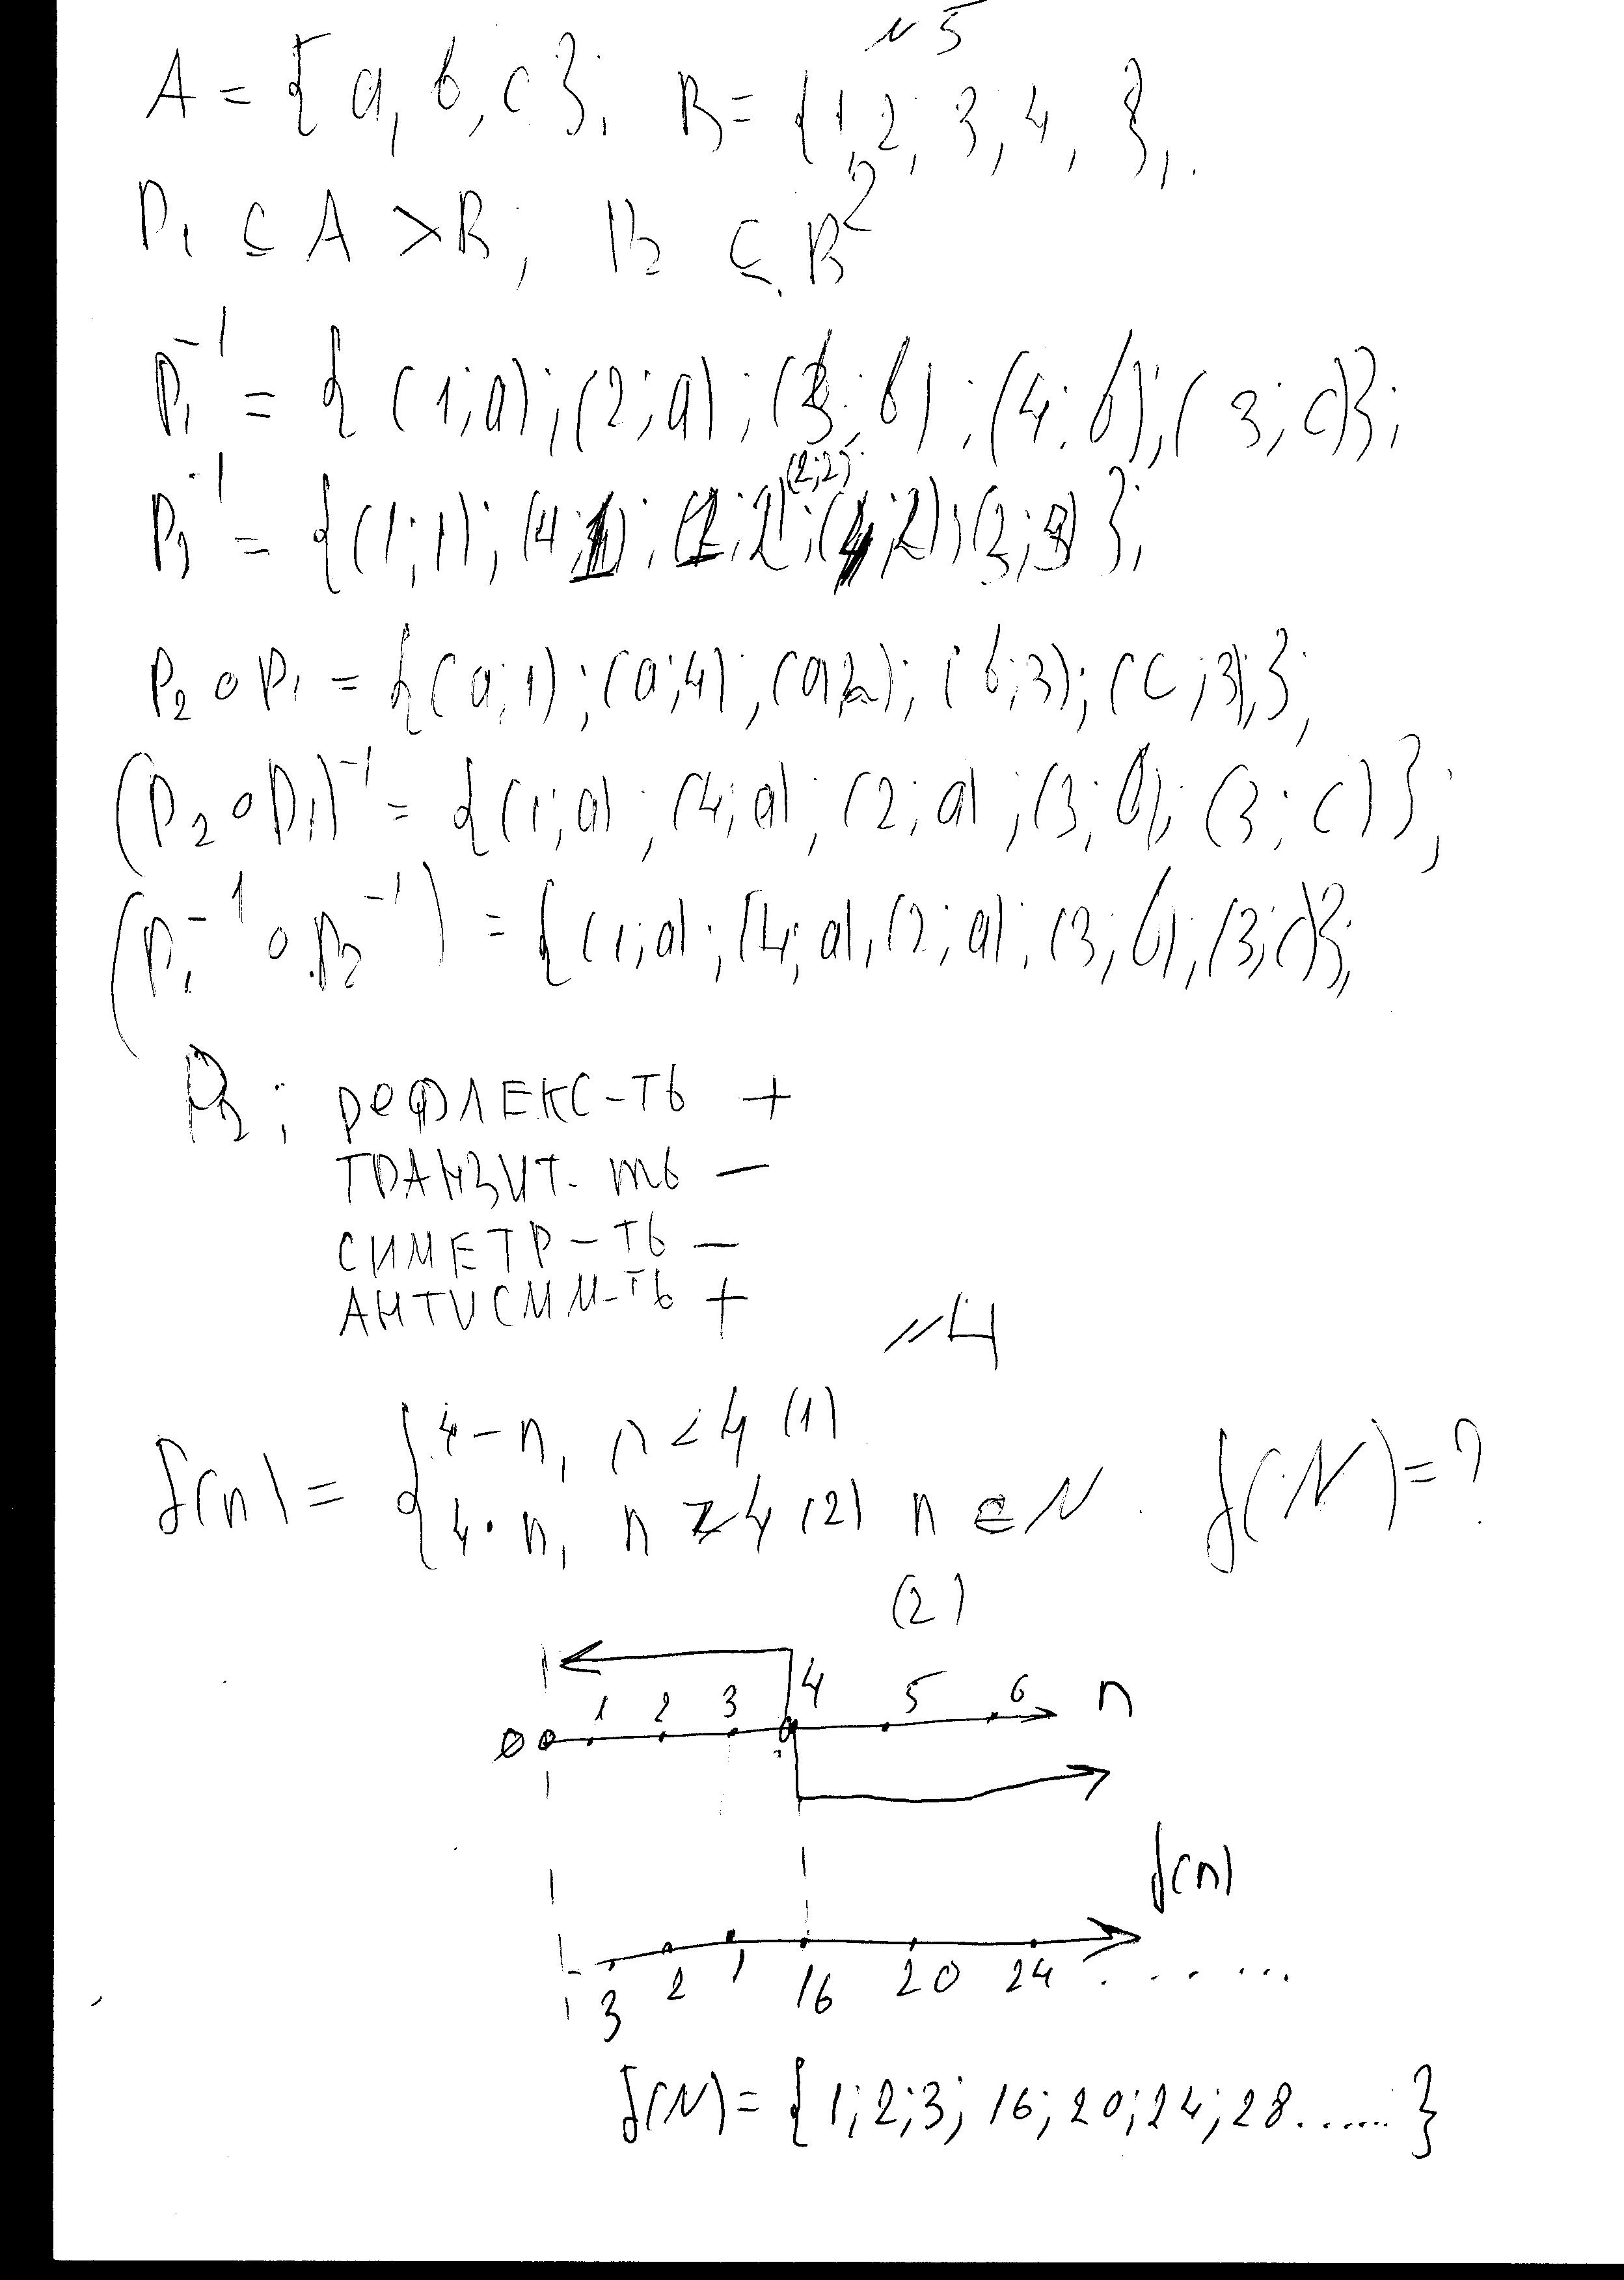 №5
A = {a, b, c}; B = {1, 2, 3, 4, },.
P₁ ⊆ A × B; P₂ ⊆ B²
P₁⁻¹ = {(1;a); (2;a); (3;b); (4;b); (3;c)};
P₂⁻¹ = {(1;1); (4;1); (1;2); (2;2); (4;2); (3;3)};
P₂ ∘ P₁ = {(a;1); (a;4); (a;2); (b;3); (c;3);};
(P₂ ∘ P₁)⁻¹ = {(1;a); (4;a); (2;a); (3;b); (3;c)};
(P₁⁻¹ ∘ P₂⁻¹) = {(1;a); (4;a), (2;a); (3;b); (3;c)};
P₂: РеФЛЕКС-ТЬ +
ТРАНЗИТ-ть –
СИМЕТР-ТЬ –
АНТИСММ-ТЬ +
№4
f(n) = { 4-n, n < 4 (1)
4·n, n ≥ 4 (2) n ∈ N. f(N) = ?
(2)
0 1 2 3 4 5 6 n
f(n)
3 2 1 16 20 24 ......
f(N) = {1;2;3; 16;20;24;28.......}